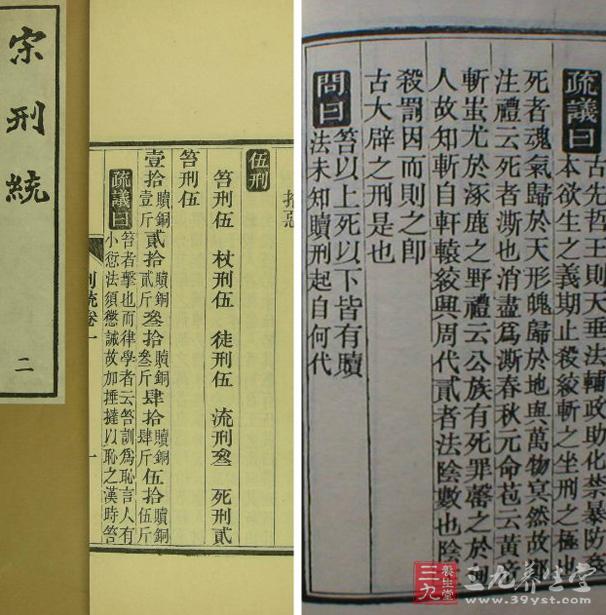 宋刑統
二
伍刑
笞刑伍 杖刑伍 徒刑伍 流刑叄 死刑貳
笞刑伍
壹拾贖銅壹斤 貳拾贖銅貳斤 叄拾贖銅叄斤 肆拾贖銅肆斤 伍拾贖銅伍斤
疏議曰 笞者擊也而律學者云笞訓爲恥言人有
小愆法須懲誡故加捶撻以恥之漢時笞
刑統卷一 一
疏議曰 古先哲王則天垂法輔政助化禁暴防姦
本欲生之義期止殺絞斬之坐刑之極也
死者魂氣歸於天形魄歸於地與萬物冥然故鄭
注禮云死者澌也消盡爲澌春秋元命苞云黃帝
斬蚩尤於涿鹿之野禮云公族有死罪罄之於甸
人故知斬自軒轅絞興周代貳者法陰數也陰
殺罰因而則之即
古大辟之刑是也
問曰 笞以上死以下皆有贖
法未知贖刑起自何代
三九養生堂
三九养生堂
www.39yst.com